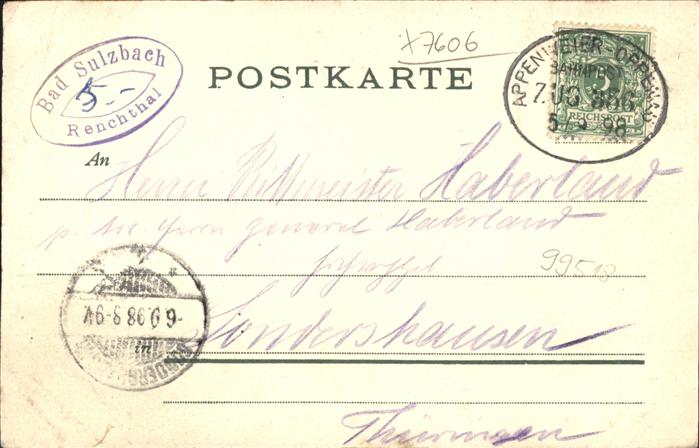 x7606
Bad Sulzbach
5.-
Renchthal
POSTKARTE
APPENWEIER-OPPENAU
BAHNPOST
ZUG 886
5/9 98
REICHSPOST
An
Herrn Rittmeister Haberland
Herrn General Haberland
99518
6.9.98 8-9V.
Sondershausen
in
Thüringen